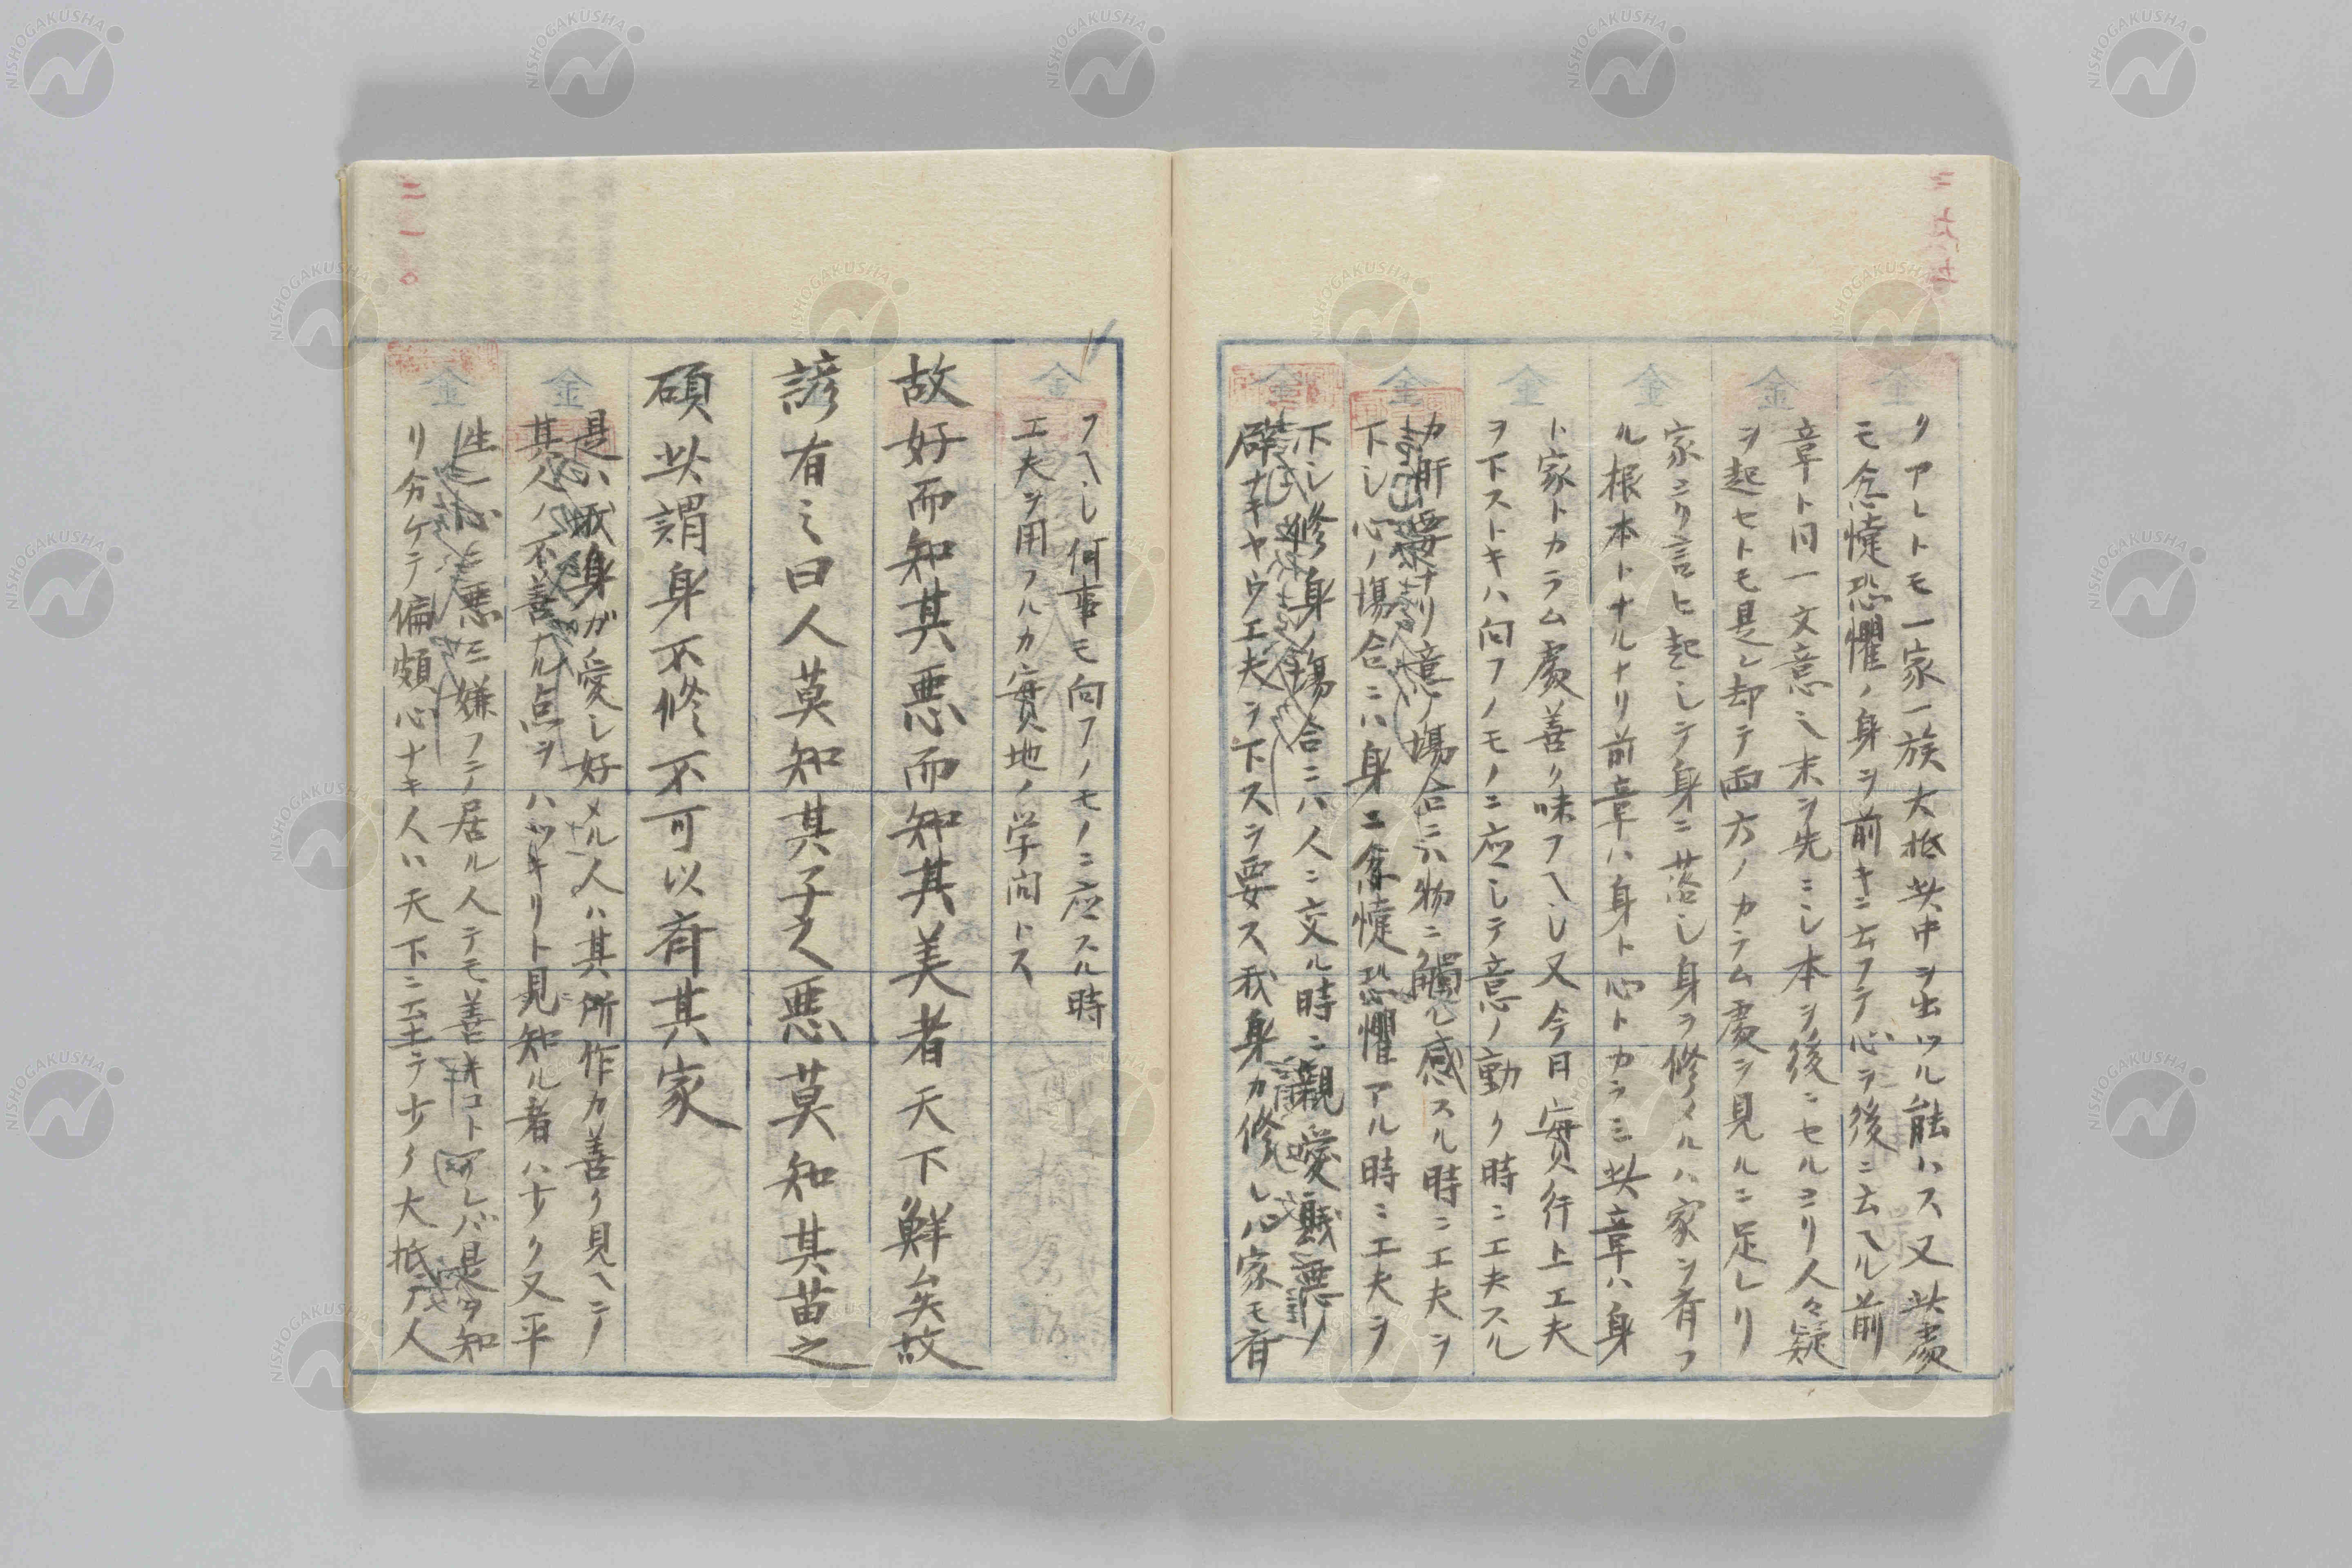 クアレトモ一家一族大抵此中ヲ出ツル能ハス又此處
モ忿懥恐懼ノ身ヲ前キニ云フテ心ヲ後ニ云ヘル前
章ト同一文意ニ末ヲ先ニシ本ヲ後ニセルヨリ人々疑
ヲ起セトモ是レ却テ両方ノカラム處ヲ見ルニ足レリ
家ニり言ヒ起シテ身ニ落シ身ヲ修メルハ家ヲ斉フ
ル根本トナルナリ前章ハ身ト心トカラミ此章ハ身
ト家トカラム處善ク味フヘシ又今日實行上工夫
ヲ下ストキハ向フノモノニ応シテ意ノ動ク時ニ工夫スル
カ肝要ナリ意ノ場合ニハ物ニ觸レ感スル時ニ工夫ヲ
下シ心ノ場合ニハ身ニ忿懥恐懼アル時ニ工夫ヲ
下シ修身ノ場合ニハ人ニ交ル時ニ親愛賤悪ノ
辟ナキヤウ工夫ヲ下スヲ要ス我身カ修レハ家モ斉
二一〇
フヘシ何事モ向フノモノニ応スル時
工夫ヲ用フルカ實地ノ学問トス
故好而知其悪而知其美者天下鮮矣故
諺有之曰人莫知其子之悪莫知其苗之
碩此謂身不修不可以斉其家
是ハ我身ガ愛シ好メル人ハ其所作カ善ク見ヘテ
其人ノ不善ナル点ヲハツキリト見知ル者ハ少ク又平
性悪ミ嫌フテ居ル人テモ善キコト阿レバ是ヲ知
リ分ケテ偏頗心ナキ人ハ天下ニ至テ少ク大抵人
金
NISHOGAKUSHA